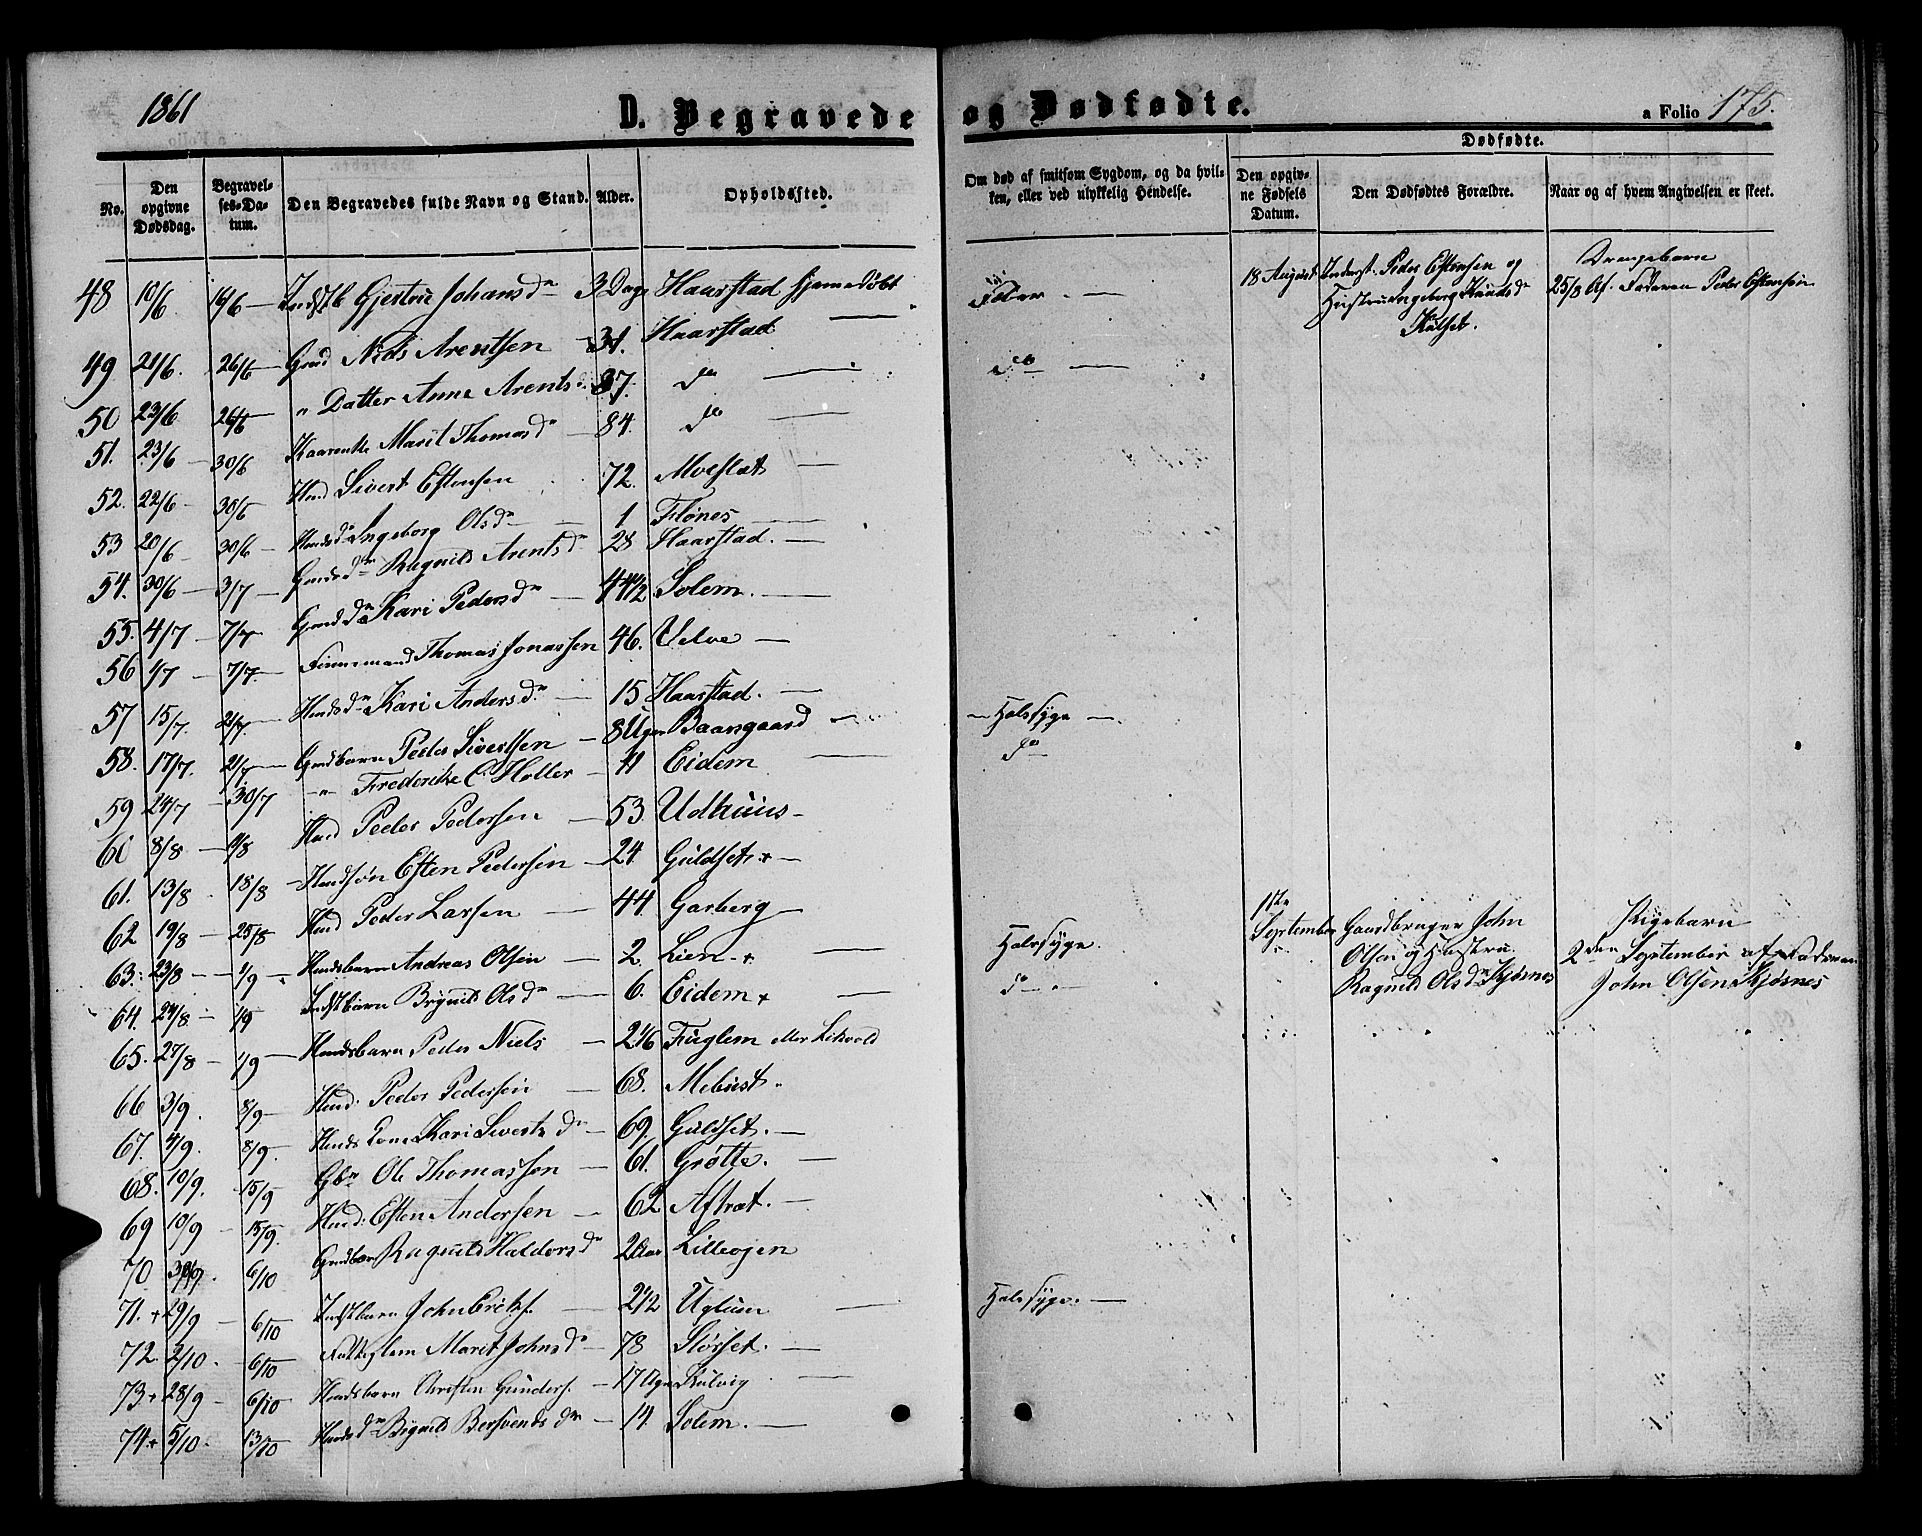 1861
D. Begravede og Dødfødte.
a Folio 175.
No.
Den opgivne Dødsdag.
Begravelses-Datum.
Den Begravedes fulde Navn og Stand.
Alder.
Opholdssted.
Om død af smitsom Sygdom, og da hvilken, eller ved ulykkelig Hendelse.
Dødfødte.
Den opgivne Fødsels Datum.
Den Dødfødtes Forældre.
Naar og af hvem Angivelsen er skeet.
48 10/6 16/6 Gjertrue Johans d. 3 Dage Haarstad hjemmedøbt
49 21/6. 26/6 Gmd Niels Arentsen 31. Haarstad
50 23/6 26/6 " Datter Anne Arents d. 37. do
51. 23/6 30/6 Kaarenke Marit Thomas d. 84. do
52. 22/6 30/6 Hmd Sivert Estensen 72. Moeslæt
53 20/6 30/6 Hmds d. Ingeborg Ols d. 1 Flønes
54. 30/6 3/7 Gmds d. Ragnild Arents d. 28 Haarstad.
55. 4/7 7/7 Gmds d. Kari Peders d. 44 1/2 Solem.
56 1/7 7/7 Finnemand Thomas Jonassen 46. Uelve
57 15/7. 21/7 Hmds d. Kari Anders d. 15 Haarstad. Halssyge
58. 17/7. 21/7 Gmdbarn Peder Sivertsen 8 Uger Baangaard do
59 24/7 30/7 " Frederikke C Holler 41 Eidem
60 8/8 9/8 Hmd Peder Pedersen 53. Udhuus
61. 13/8 18/8 Hmdssøn Esten Pedersen 24 Guldset +
62 19/8 25/8 Hmd Peder Larsen 44. Garberg
63. 23/8 1/9 Hmdsbarn Andreas Olsen 2. Lien + Halssyge.
64. 24/8 1/9 Indstbarn Brynild Ols d. 6. Eidem + do
65. 27/8 1/9 Hmdsbarn Peder Niels 2 1/6 Fuglem eller Likvold
66 3/9. 8/9 Hmd. Peder Pedersen 68. Mebust.
67. 4/9. 8/9. Hmds Kone Kari Siverts d. 69. Guldset.
68. 10/9. 15/9 Gbr Ole Thomassen 61. Grøtte.
69 10/9 15/9. Hmd. Esten Andersen 62 Aftret.
70 30/9. 6/10 Gmdbarn Ragnild Haldors d. 2 Lilleogen
71. + 29/9 6/10 Indstbarn John Eriks. 2 1/2 Uglum Halssyge.
72. 2/10. 6/10 Fattiglem Marit Johns d. 78 Slørset.
73 + 28/9 6/10 Hmdsbarn Christen Gunders. 17 Uger Kulvig
74 + 5/10. 13/10 Hmds d. Bignild Bersvends d. 14. Solem.
18 August Inderst. Peder Estensen og
Hustru Ingeborg Knuds d.
Kulset.
Drengebarn
25/8 Af Faderen Peder Estensen
1ste September
Gaardbruger John
Olsen og Hustru
Ragnild Ols d. Kjøsnes
Pigebarn
2den September af Faderen
John Olsen Kjøsnes